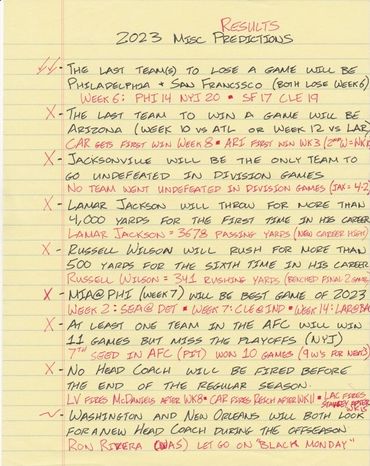 RESULTS
2023 MISC PREDICTIONS
✓✓ - THE LAST TEAM(S) TO LOSE A GAME WILL BE
PHILADELPHIA + SAN FRANCISCO (BOTH LOSE WEEK 6)
WEEK 6: PHI 14 NYJ 20 • SF 17 CLE 19
X - THE LAST TEAM TO WIN A GAME WILL BE
ARIZONA (WEEK 10 VS ATL OR WEEK 12 VS LAR)
CAR GETS FIRST WIN WEEK 8 • ARI FIRST WIN WK 3
X - JACKSONVILLE WILL BE THE ONLY TEAM TO
GO UNDEFEATED IN DIVISION GAMES
NO TEAM WENT UNDEFEATED IN DIVISION GAMES (JAX = 4-2)
X - LAMAR JACKSON WILL THROW FOR MORE THAN
4,000 YARDS FOR THE FIRST TIME IN HIS CAREER
LAMAR JACKSON = 3678 PASSING YARDS (NEW CAREER HIGH)
X - RUSSELL WILSON WILL RUSH FOR MORE THAN
500 YARDS FOR THE SIXTH TIME IN HIS CAREER
RUSSELL WILSON = 341 RUSHING YARDS (BENCHED FINAL 2 GAMES)
X - MIA@PHI (WEEK 7) WILL BE BEST GAME OF 2023
WEEK 2: SEA@DET • WEEK 7: CLE@IND • WEEK 14: LAR@BAL
X - AT LEAST ONE TEAM IN THE AFC WILL WIN
11 GAMES BUT MISS THE PLAYOFFS (NYJ)
7TH SEED IN AFC (PIT) WON 10 GAMES (9 W'S FOR NEXT 3)
X - NO HEAD COACH WILL BE FIRED BEFORE
THE END OF THE REGULAR SEASON.
LV FIRES MCDANIELS AFTER WK 8 • CAR FIRES REICH AFTER WK 11 • LAC FIRES STALEY AFTER WK 15
~ - WASHINGTON AND NEW ORLEANS WILL BOTH LOOK
FOR A NEW HEAD COACH DURING THE OFFSEASON
RON RIVERA (WAS) LET GO ON "BLACK MONDAY"